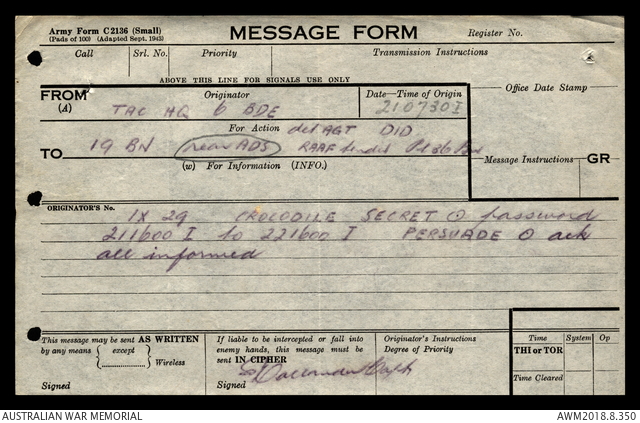 Army Form C2136 (Small)
(Pads of 100) (Adapted Sept. 1943)
MESSAGE FORM
Register No.
Call
Srl. No.
Priority
Transmission Instructions
ABOVE THIS LINE FOR SIGNALS USE ONLY
FROM
(A)
Originator
Date—Time of Origin
Office Date Stamp
TAC HQ 6 BDE
210730 I
For Action
det AGT DID
TO
19 BN rear ADS RAAF Pl 36
(W) For Information (INFO.)
Message Instructions
GR
ORIGINATOR'S No.
IX 29 CROCODILE SECRET ⊙ password
211600 I to 221600 I PERSUADE ⊙ ack
all informed
This message may be sent AS WRITTEN
by any means { except } Wireless
Signed
If liable to be intercepted or fall into
enemy hands, this message must be
sent IN CIPHER
Signed Capt
Originator's Instructions
Degree of Priority
Time
System
Op
THI or TOR
Time Cleared
AUSTRALIAN WAR MEMORIAL
AWM2018.8.350